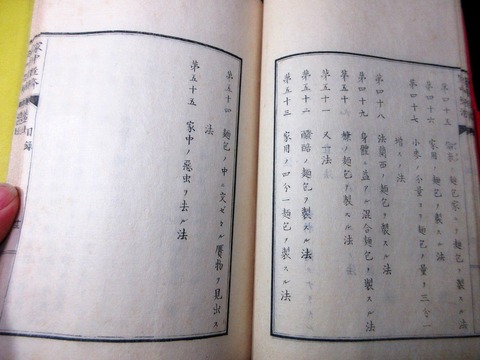 第四十五
麺包ヲ製スル法
第四十六 家用ノ麺包ヲ製スル法
第四十七 小麥ノ小量ヨリ麺包ノ量ヲ三分一
増スノ法
第四十八 法蘭西ノ麺包ヲ製スル法
第四十九 身體ニ益アル混合麺包ヲ製スル法
第五十 糠ノ麺包ヲ製スル法
第五十一 又一法
第五十二 麺包ヲ製スル法
第五十三 家用ノ四分一麺包ヲ製スル法
第五十四 麺包ノ中ニ交ゼタル贋物ヲ見出ス
法
第五十五 家中ノ惡虫ヲ去ル法
目録